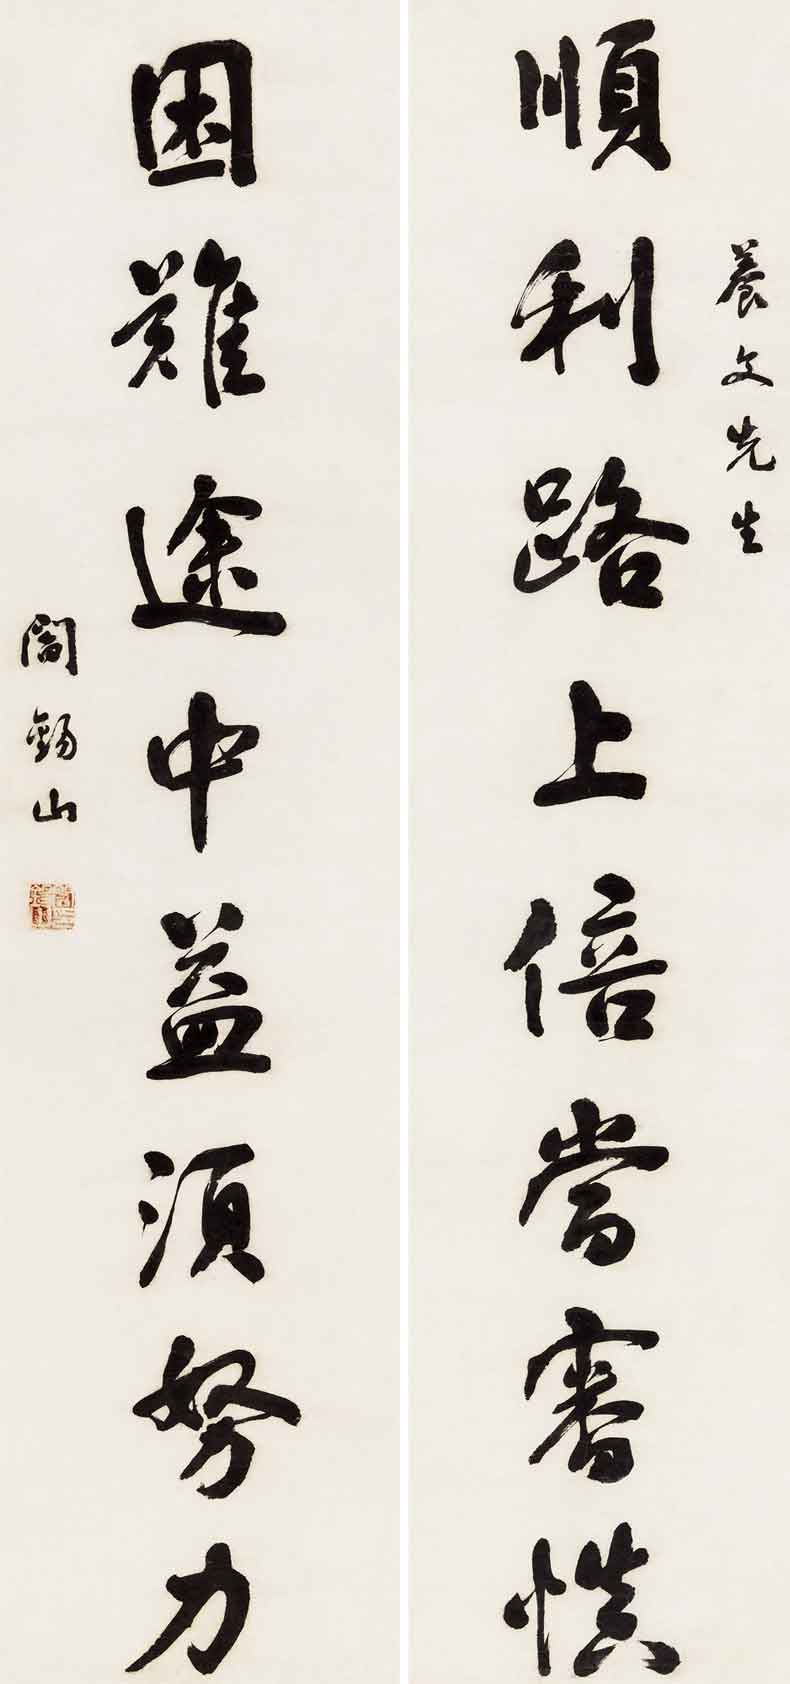 養文先生
順利路上倍當審慎
困難途中益須努力
閻錫山